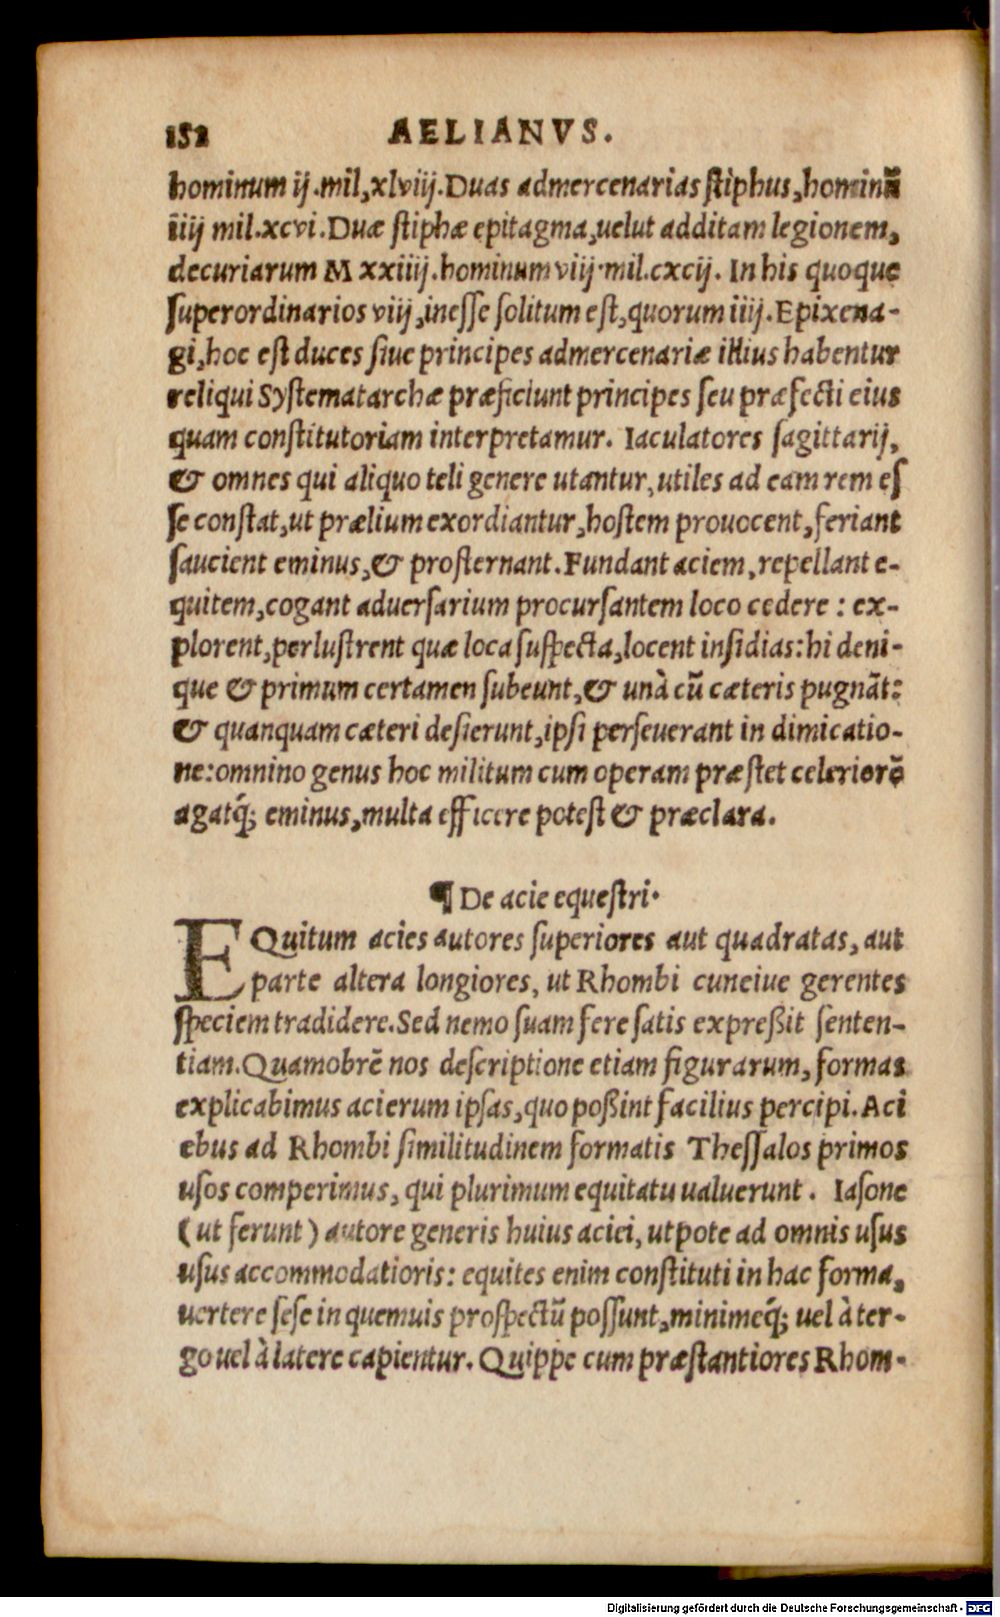 152 AELIANVS.
hominum ij.mil,xlviij.Duas admercenarias stiphus,hominū
iiij mil.xcvi.Duæ stiphæ epitagma,uelut additam legionem,
decuriarum M xxiiij.hominum viij.mil.cxcij. In his quoque
superordinarios viij,inesse solitum est,quorum iiij.Epixena-
gi,hoc est duces siue principes admercenariæ illius habentur
reliqui Systematarchæ præficiunt principes seu præfecti eius
quam constitutoriam interpretamur. Iaculatores sagittarij,
& omnes qui aliquo teli genere utantur, utiles ad eam rem es
se constat,ut prælium exordiantur,hostem prouocent,feriant
saucient eminus,& prosternant.Fundant aciem,repellant e-
quitem,cogant aduersarium procursantem loco cedere : ex-
plorent,perlustrent quæ loca suspecta,locent insidias:hi deni-
que & primum certamen subeunt,& unà cū cæteris pugnāt:
& quanquam cæteri desierunt,ipsi perseuerant in dimicatio-
ne:omnino genus hoc militum cum operam præstet celeriorē
agatq́; eminus,multa efficere potest & præclara.
¶ De acie equestri.
EQuitum acies autores superiores aut quadratas, aut
parte altera longiores, ut Rhombi cuneiue gerentes
speciem tradidere.Sed nemo suam fere satis expreßit senten-
tiam.Quamobrē nos descriptione etiam figurarum, formas
explicabimus acierum ipsas,quo poßint facilius percipi.Aci
ebus ad Rhombi similitudinem formatis Thessalos primos
usos comperimus, qui plurimum equitatu ualuerunt. Iasone
(ut ferunt) autore generis huius aciei, utpote ad omnis usus
usus accommodatioris: equites enim constituti in hac forma,
uertere sese in quemuis prospectū possunt,minimeq́; uel à ter-
go uel à latere capientur. Quippe cum præstantiores Rhom-
Digitalisierung gefördert durch die Deutsche Forschungsgemeinschaft - DFG